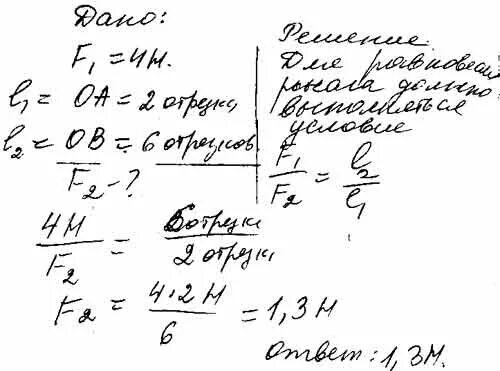 Дано:
F₁ = 4Н.
l₁ = OA = 2 отрезка
l₂ = OB = 6 отрезков
F₂ - ?
Решение:
Для равновесия
рычага должно
выполняться
условие
F₁/F₂ = l₂/l₁
4Н/F₂ = 6 отрезк/2 отрезк
F₂ = 4·2 Н/6 = 1,3 Н
Ответ: 1,3Н.